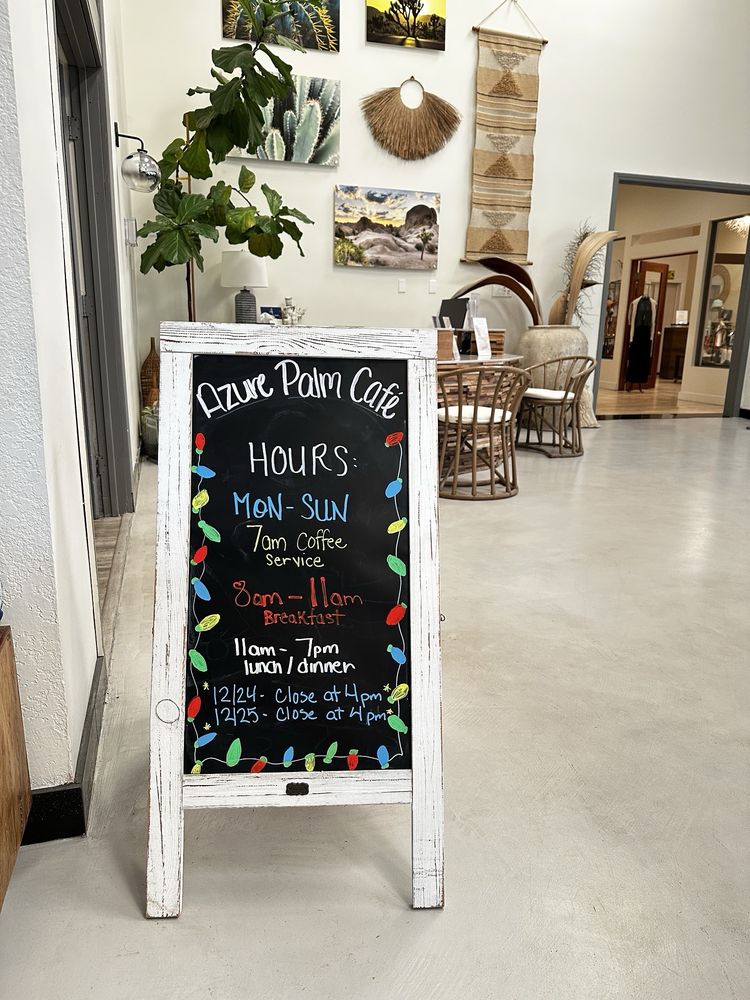 Azure Palm Café
HOURS:
MON-SUN
7am Coffee
Service
8am - 11am
Breakfast
11am - 7pm
lunch / dinner
12/24 - Close at 4pm
12/25 - Close at 4pm